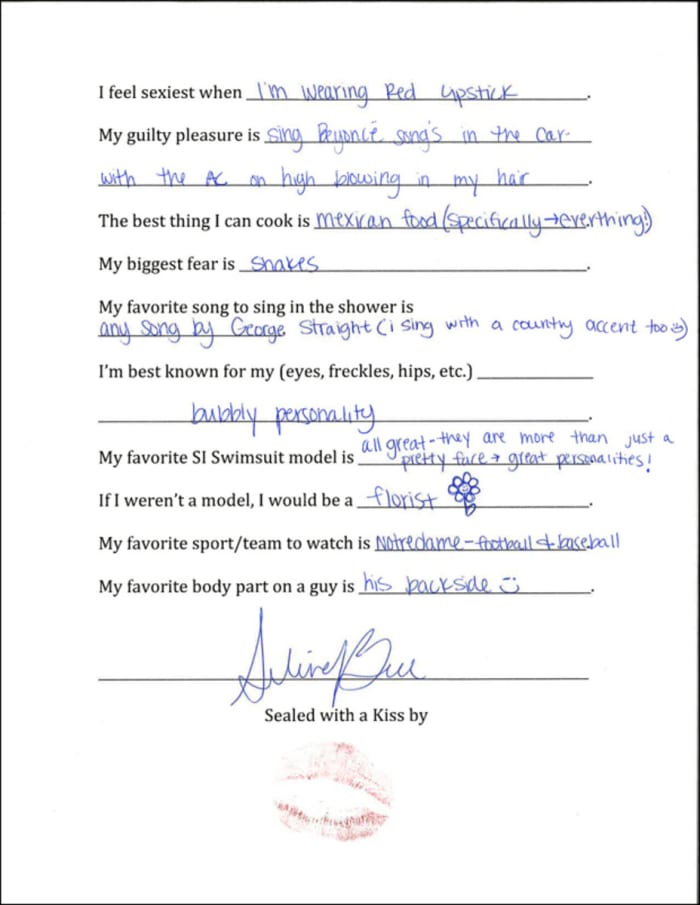 I feel sexiest when I'm wearing Red lipstick.
My guilty pleasure is sing Beyoncé song's in the car-
with the AC on high blowing in my hair.
The best thing I can cook is mexican food (specifically→everthing!)
My biggest fear is snakes.
My favorite song to sing in the shower is
any song by George Straight (i sing with a country accent too☺)
I'm best known for my (eyes, freckles, hips, etc.)
bubbly personality.
all great-they are more than just a
My favorite SI Swimsuit model is pretty face + great personalities!
If I weren't a model, I would be a florist.
My favorite sport/team to watch is Notredame-football + baseball
My favorite body part on a guy is his backside ☺.
Sealed with a Kiss by